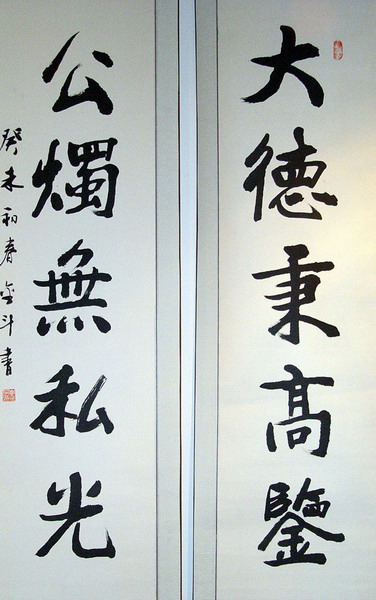 大德秉高鑒
公燭無私光
癸未初春金斗書